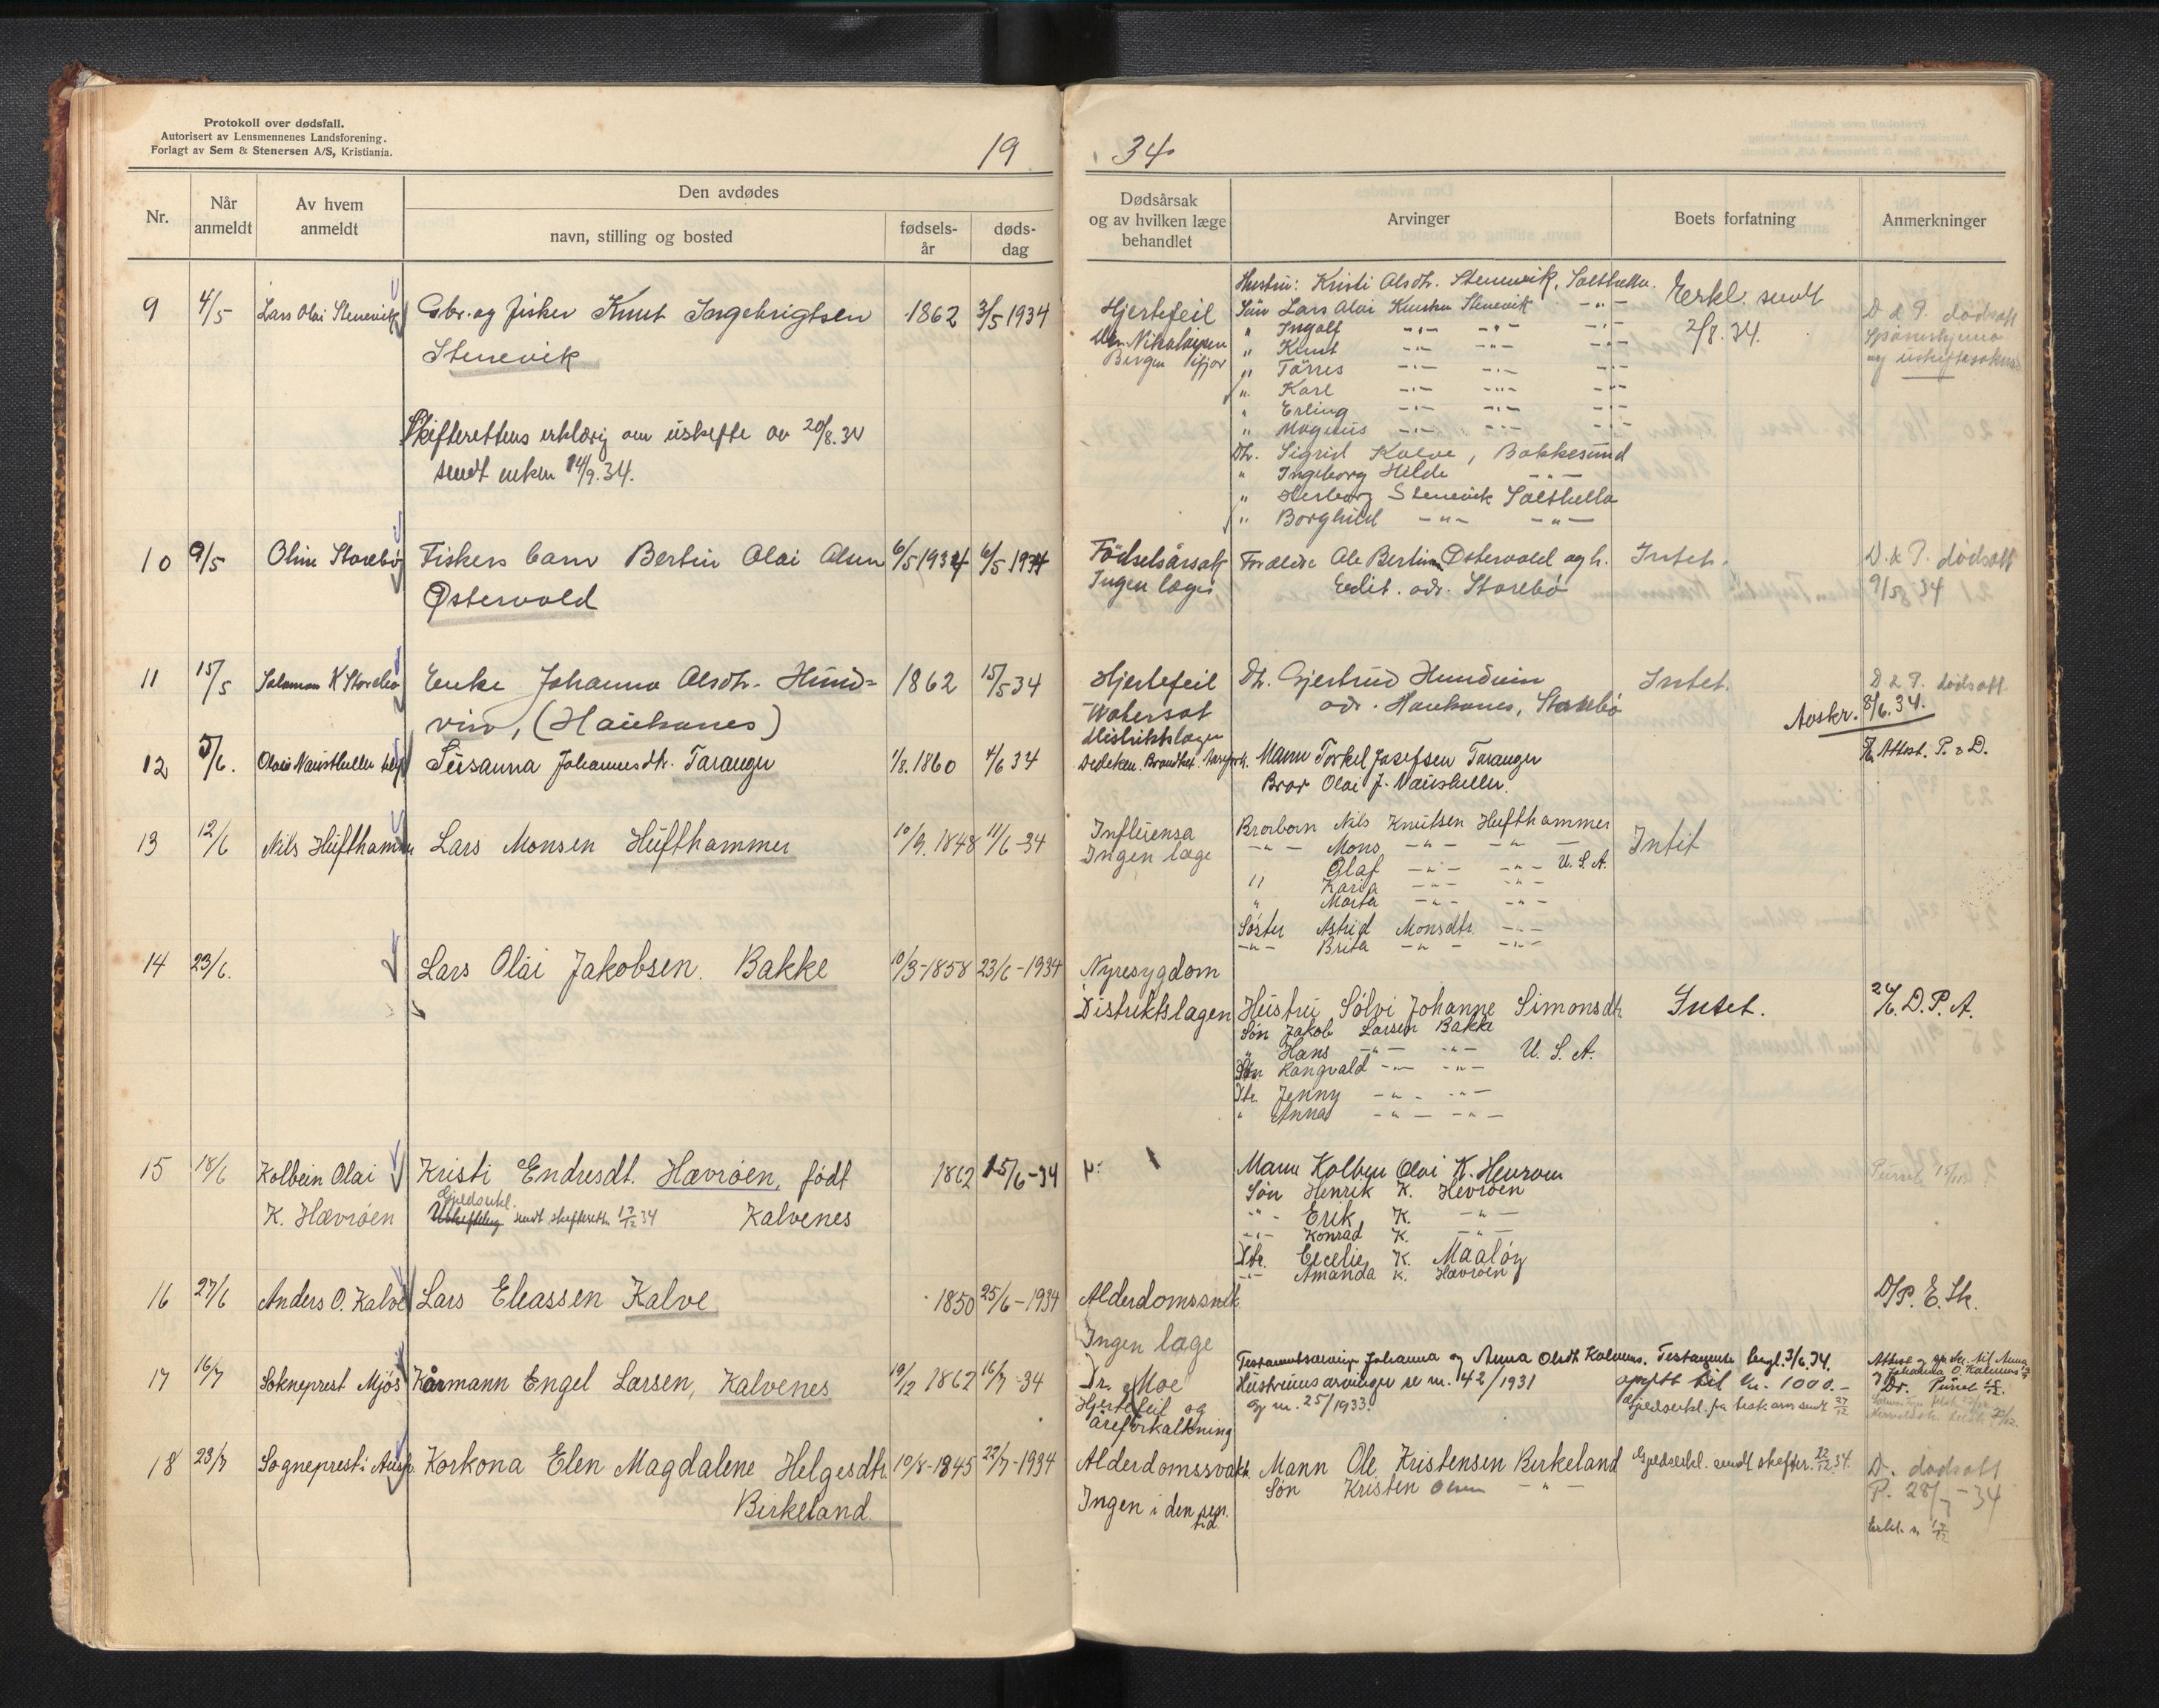 Protokoll over dødsfall.
Autorisert av Lensmennenes Landsforening.
Forlagt av Sem & Stenersen A/S, Kristiania.
19
34
Nr.
Når anmeldt
Av hvem anmeldt
Den avdødes
navn, stilling og bosted
fødsels-år
døds-dag
Dødsårsak og av hvilken læge behandlet
Arvinger
Boets forfatning
Anmerkninger
9 4/5 Lars Olai Stenevik Gbr. og fisker Knut Ingebrigtsen 1862 3/5 1934
Stenevik
Skifterettens erklærig om uskifte av 20/8.34
sendt enken 14/9.34.
Hjertefeil
Nikolaisen
Bergen ifjor
Hustru: Kristi Olsdtr. Stenevik, Solthella.
Sön Lars Olai Knutsen Stenevik -"-
" Ingolf -"- -"- -"-
" Knut -"- -"- -"-
" Tårres -"- -"- -"-
" Karl -"- -"- -"-
" Erling -"- -"- -"-
" Magnus -"- -"- -"-
Dtr. Sigrid Kalve, Bakkesund
" Ingeborg Hilde -"-
" Herborg Stenevik Solthella
" Borghild -"- -"-
Erkl. sendt
2/8.34.
D & P. dødsatt
og uskiftesøkn.
10 9/5 Oline Storebø Fiskers barn Bertin Olai Olsen 6/5 1934 6/5 1934
Østervold
Fødselsårsak
Ingen læge
Foreldre Ole Bertin Østervold og h.
Edit. adr. Storebø
Intet.
D. & P. dødsatt
9/5 34
11 15/5 Salamon K Storebø Enke Johanna Olsdtr. Hund=
vin, (Haukanes) 1862 15/5 34
Hjertefeil
Watersot
Distriktslægen
Dtr. Gjertrud Hundvin
adr. Haukanes, Storebø
Intet.
D & P. dødsatt
Avskr. 8/6.34.
12 5/6. Olai Naustheller Susanna Johannesdtr. Taranger 1/8.1860 4/6 34
Mann Torkel Josefsen Taranger
Bror Olai J. Naustheller.
Attest. P. & D.
13 12/6 Nils Hufthammer Lars Monsen Hufthammer 10/9.1848 11/6-34
Influensa
Ingen læge
Brorborn Nils Knutsen Hufthammer
-"- Mons -"- -"-
Olaf -"- -"- U.S.A.
" Karia -"- -"-
" Marta -"- -"-
Søster Astrid Monsdtr. -"-
-"- Brita -"- -"-
Intet
14 23/6. Lars Olai Jakobsen. Bakke 10/3-1858 23/6-1934
Nyresygdom
Distriktslægen
Hustru Sølvi Johanne Simonsdtr
Søn Jakob Larsen Bakke
" Hans -"- -"- U.S.A.
Søn Rangvald -"- -"-
Dtr. Jenny -"- -"-
" Anna -"- -"-
Intet.
26/6. D.P.A.
15 18/6 Kolbein Olai Kristi Endresdt. Hævrøen, født 1862 15/6-34
K. Hævrøen Gjeldserkl. sendt skifterett. 17/12 34 Kalvenes
Mann Kolbein Olai K. Hevrøen
Søn Henrik K. Hevrøen
-"- Erik K. -"-
-"- Konrad K. -"-
Dtr. Cecelie K. Maaløy
-"- Amanda K. Hævrøen
16 27/6 Anders O. Kalve Lars Eleassen Kalve 1850 25/6-1934
Alderdomssvekk.
Ingen læge
D/P. E. Sk.
17 16/7 Sokneprest Mjøs Kårmann Engel Larsen, Kalvenes 19/12 1862 16/7-34
Dr. Moe
Hjertefeil og
åreforkalkning
Testamentsarvinger Johanna og Anna Olsdt Kalvenes. Testamente tingl. 3/6.34.
Hustruens arvinger se nr. 42/1931
og nr. 25/1933.
opgitt til kr. 1000.-
Gjeldserkl. fra test. arv. sendt 27/12
18 23/7 Sogneprest i Aust. Korkona Elen Magdalene Helgesdtr. 10/8-1845 22/7-1934
Birkeland.
Alderdomssvakh.
Ingen i den sen.
tid.
Mann Ole Kristensen Birkeland
Søn Kristen Olsen -"-
Gjeldserkl. sendt skifter. 12/12 34.
D. dødsatt
P. 28/7-34
Erkl. s. 17/12